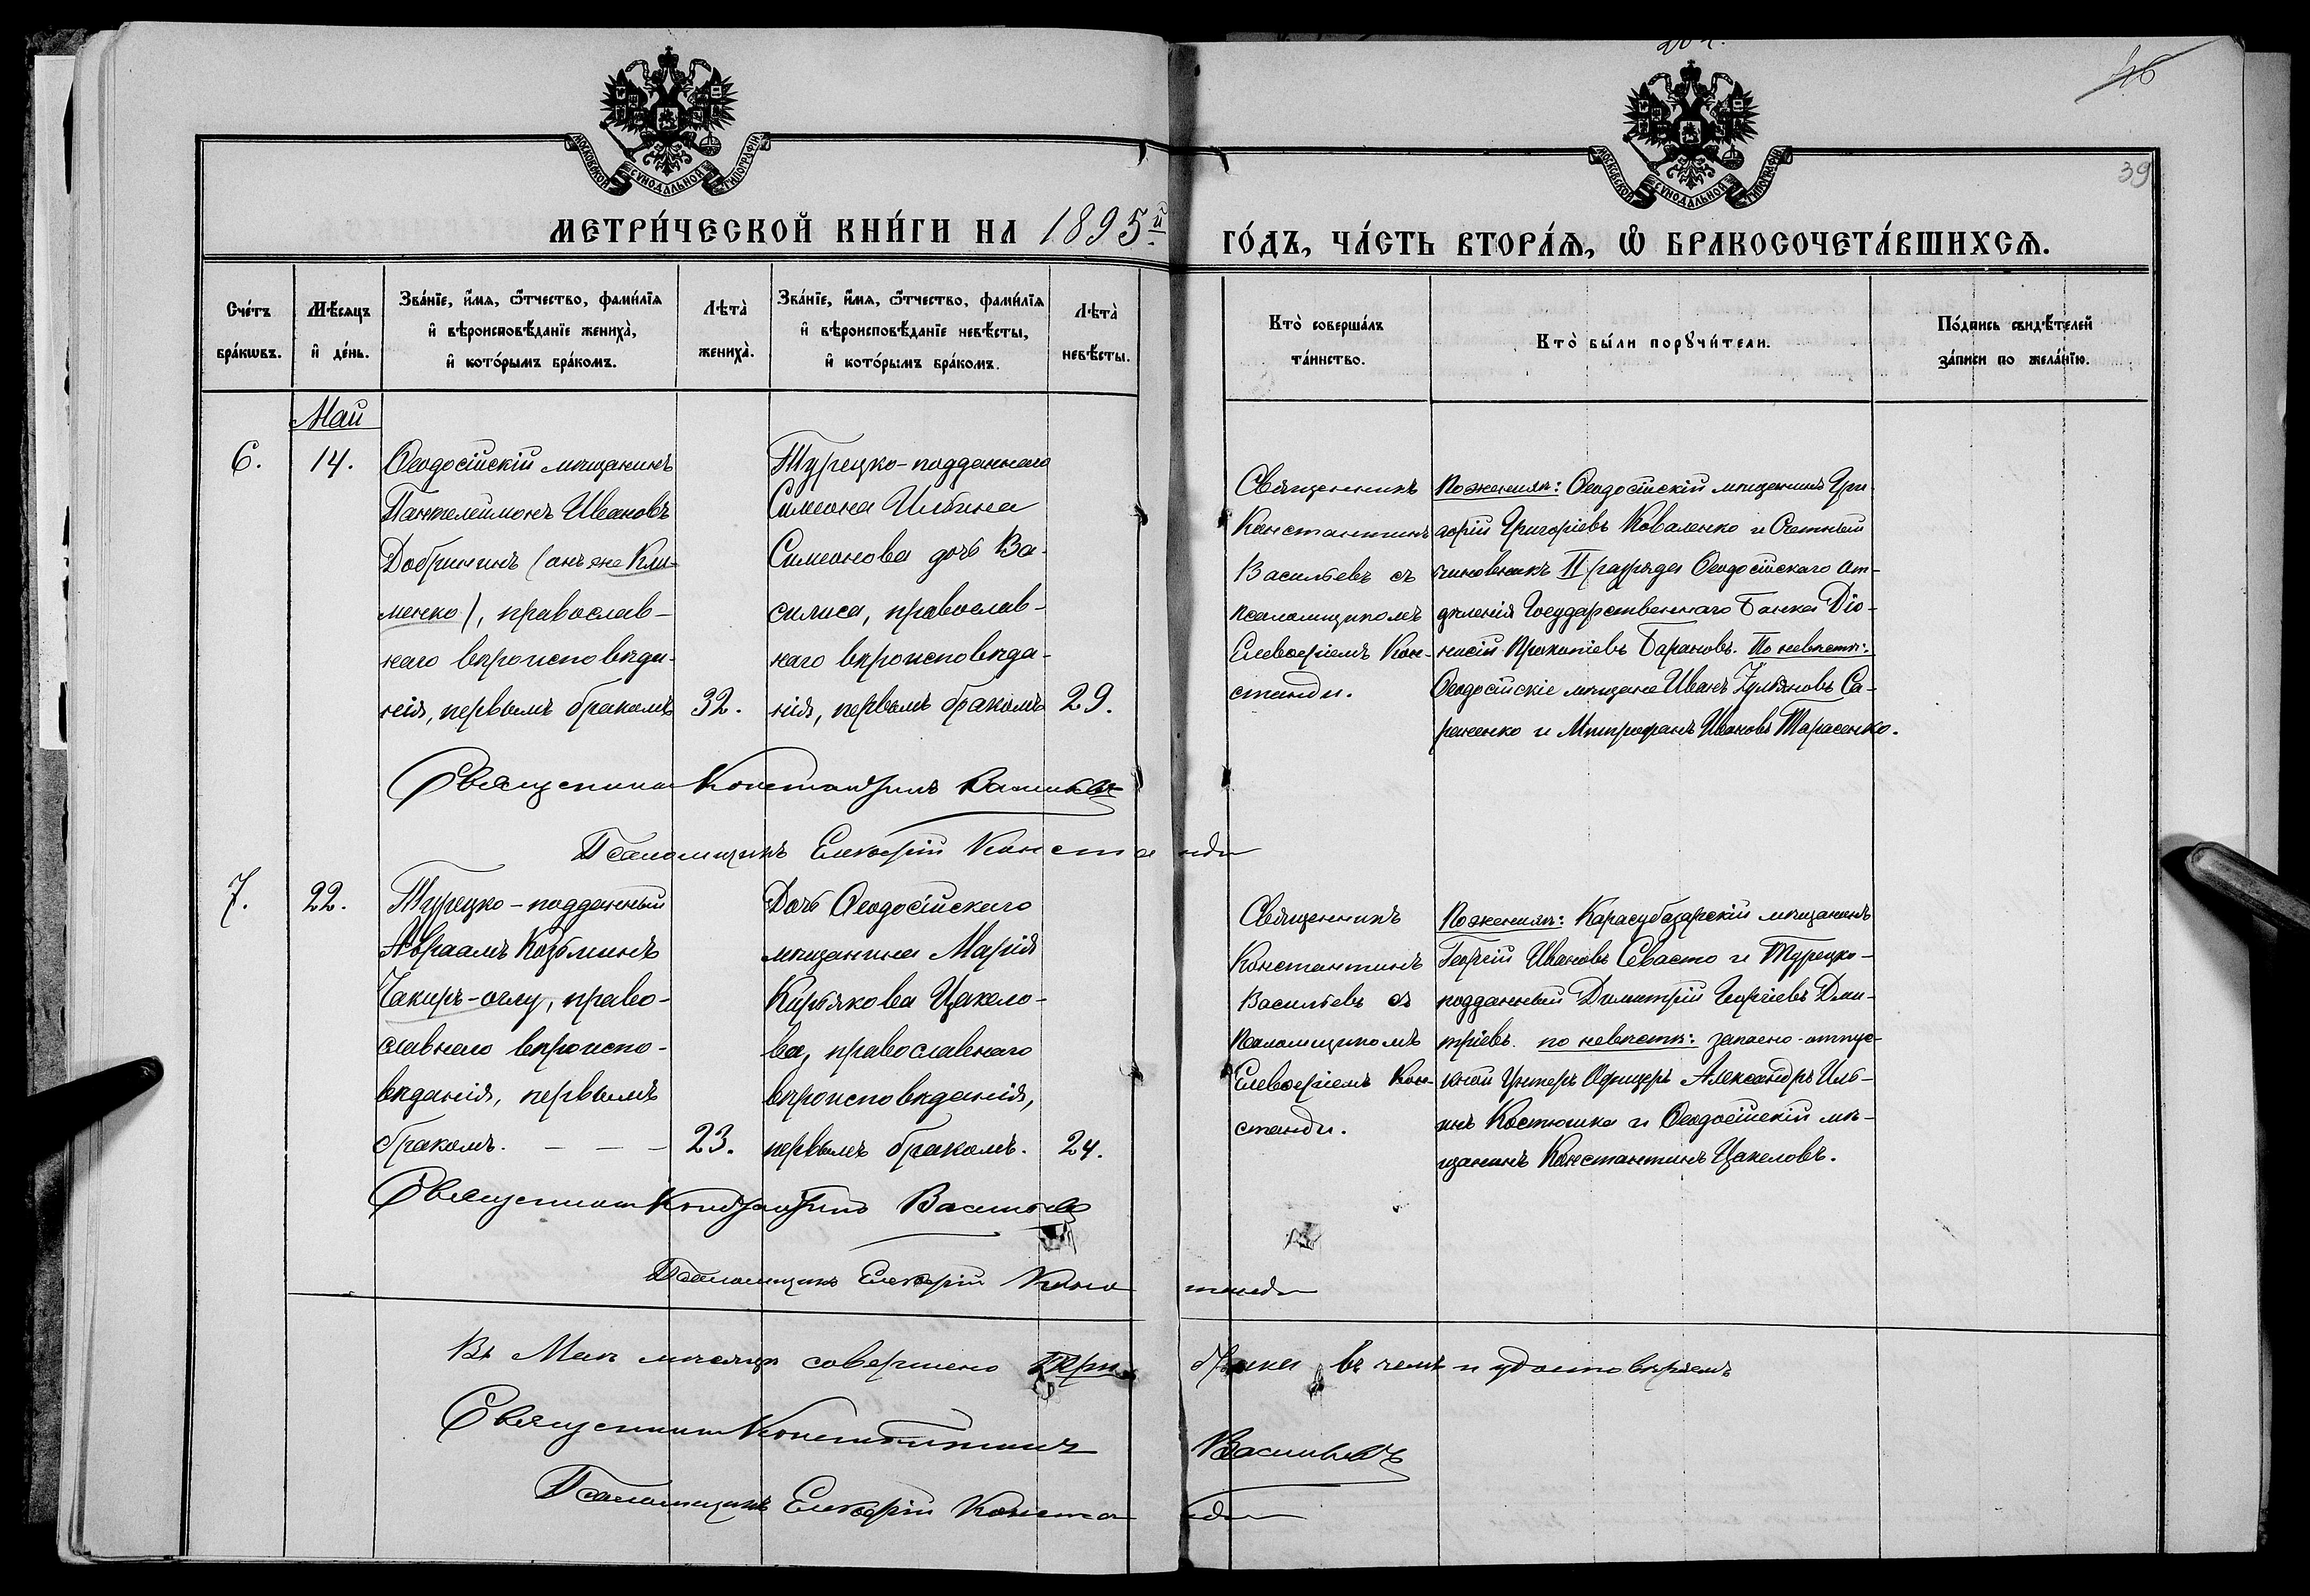 46
39
МОСКОВСКОЙ СѴНОДАЛЬНОЙ ТИПОГРАФІИ
МОСКОВСКОЙ СѴНОДАЛЬНОЙ ТИПОГРАФІИ
МЕТРИ́ЧЕСКОЙ КНИ́ГИ НА 1895й ГО́ДЪ, ЧА́СТЬ ВТОРА́Ѧ, Ѡ҆ БРАКОСОЧЕТА́ВШИХСѦ.
Сче́тъ
бра́кѡвъ.
Мѣ́сѧцъ
и҆ де́нь.
Зва́нїе, и҆́мѧ, ѻ҆́тчество, фами́лїѧ
и҆ вѣроисповѣ́данїе жениха̀,
и҆ кото́рымъ бра́комъ.
Лѣта̀
жениха̀.
Зва́нїе, и҆́мѧ, ѻ҆́тчество, фами́лїѧ
и҆ вѣроисповѣ́данїе невѣ́сты,
и҆ кото́рымъ бра́комъ.
Лѣта̀
невѣ́сты.
Кто̀ соверша́лъ
та́инство.
Кто̀ бы́ли порꙋчи́тели.
По́дпись свидѣ́телей
за́писи по жела́нїю.
Май
6.
14.
Ѳеодосійскій мѣщанинъ
Пантелеимонъ Ивановъ
Добрининъ (онъ же Кли-
менко), православ-
наго вѣроисповѣда-
нія, первымъ бракомъ
32.
Турецко-подданнаго
Симеона Ильина
Симеонова дочь Ва-
силиса, православ-
наго вѣроисповѣда-
нія, первымъ бракомъ
29.
Священникъ
Константинъ
Васильевъ съ
псаломщикомъ
Елевѳеріемъ Кон-
станди.
По женихѣ: Ѳеодосійскій мѣщанинъ Гри-
горій Григоріевъ Коваленко и Счетный
чиновникъ II разряда Ѳеодосійскаго От-
дѣленія Государственнаго Банка Діо-
нисій Прокопіевъ Барановъ. По невѣстѣ:
Ѳеодосійскіе мѣщане Иванъ Са-
ренко и Митрофанъ Ивановъ Тарасенко.
Священникъ Константинъ Васильевъ
Псаломщикъ Елевѳерій Константи
7.
22.
Турецко-подданный
Авраамъ Козьминъ
Чакиръ-оглу, право-
славнаго вѣроиспо-
вѣданія, первымъ
бракомъ. — — —
23.
Дочь Ѳеодосійскаго
мѣщанина Марія
Кирьякова Цакело-
ва, православнаго
вѣроисповѣданія,
первымъ бракомъ.
24.
Священникъ
Константинъ
Васильевъ съ
псаломщикомъ
Елевѳеріемъ Кон-
станди.
По женихѣ: Карасубазарскій мѣщанинъ
Георгій Ивановъ Севасто и Турецко-
подданный Димитрій Георгіевъ Дми-
тріевъ. по невѣстѣ: запасно-отпус-
кной Унтеръ Офицеръ Александръ Иль-
инъ Костюшка и Ѳеодосійскій мѣ-
щанинъ Константинъ Цакеловъ.
Священникъ Константинъ Васильевъ
Псаломщикъ Елевѳерій Констанди
Въ Маѣ мѣсяцѣ совершено три брака въ чемъ и удостовѣряемъ
Священникъ Константинъ Васильевъ
Псаломщикъ Елевѳерій Констанди